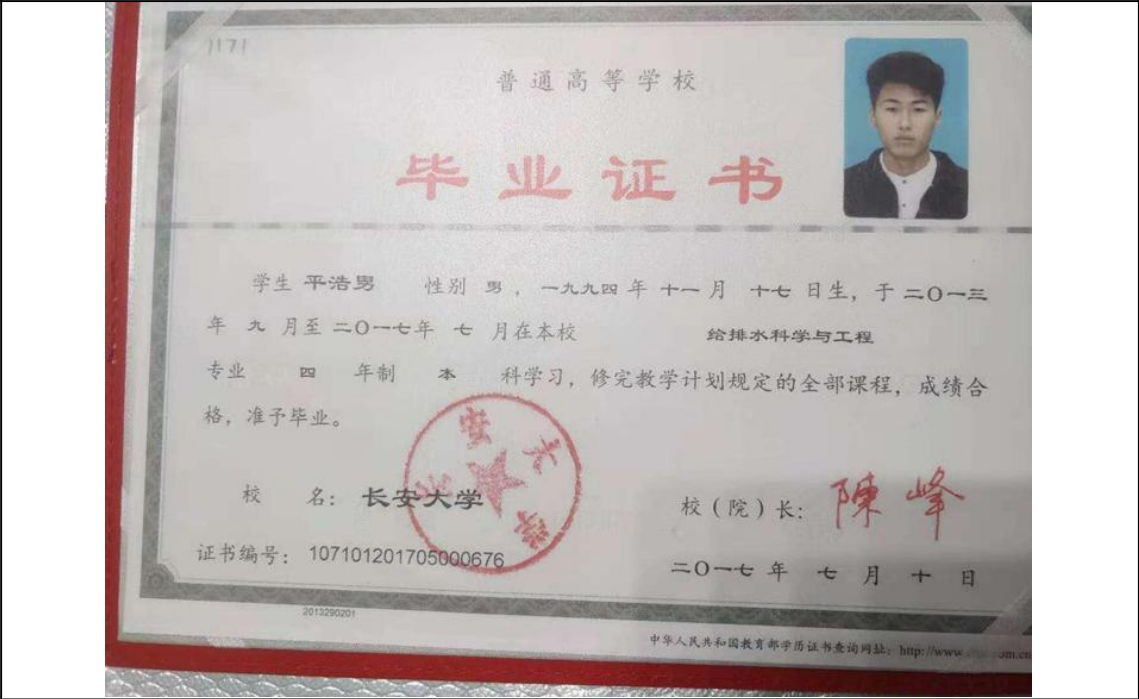 1171
普通高等学校
毕业证书
学生 平浩男 性别 男 ，一九九四 年 十一 月 十七 日生，于 二〇一三
年 九 月至 二〇一七年 七 月在本校 给排水科学与工程
专业 四 年制 本 科学习，修完教学计划规定的全部课程，成绩合
格，准予毕业。
长安大学
校 名：长安大学
校（院）长：陳峰
证书编号：107101201705000676
二〇一七 年 七 月 十 日
2013290201
中华人民共和国教育部学历证书查询网址：http://www.